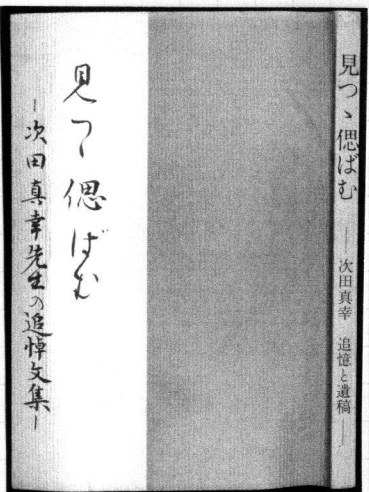 見つゝ偲ばむ
―― 次田真幸 追憶と遺稿 ――
見つゝ偲ばむ
―次田真幸先生の追悼文集―